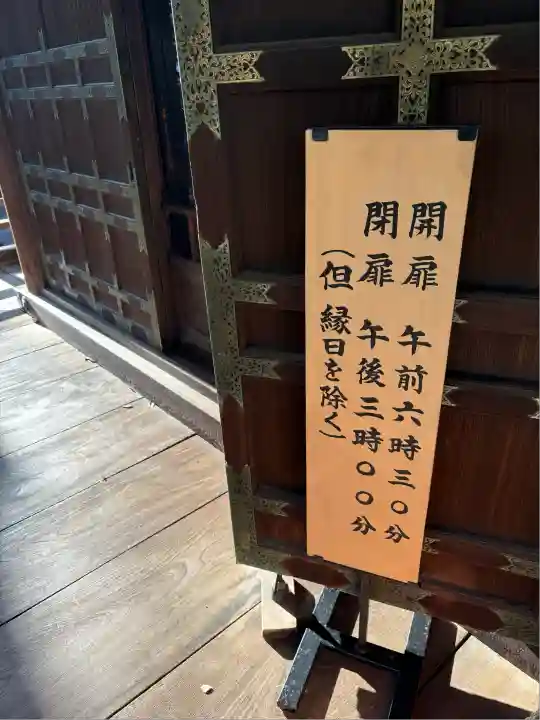 開扉 午前六時三〇分
閉扉 午後三時〇〇分
（但 縁日を除く）